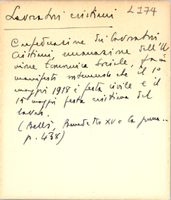 Lavoratori cristiani L 174
Confederazione dei lavoratori
cristiani, emanazione dell'U
nione Economica Sociale,
manifesto sostenendo che il 1o
maggio 1918 è festa civile e il
15 maggio festa cristiana del
lavoro.
(Belli, Benedetto XV e la
p. 438)